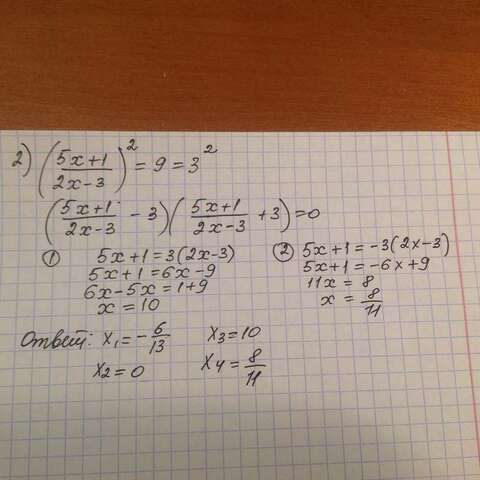 2) ((5x+1)/(2x-3))² = 9 = 3²
((5x+1)/(2x-3) - 3)((5x+1)/(2x-3) + 3) = 0
① 5x+1=3(2x-3)
5x+1=6x-9
6x-5x=1+9
x = 10
② 5x+1=-3(2x-3)
5x+1=-6x+9
11x = 8
x = 8/11
Ответ: x₁ = -6/13 x₃ = 10
x₂ = 0 x₄ = 8/11